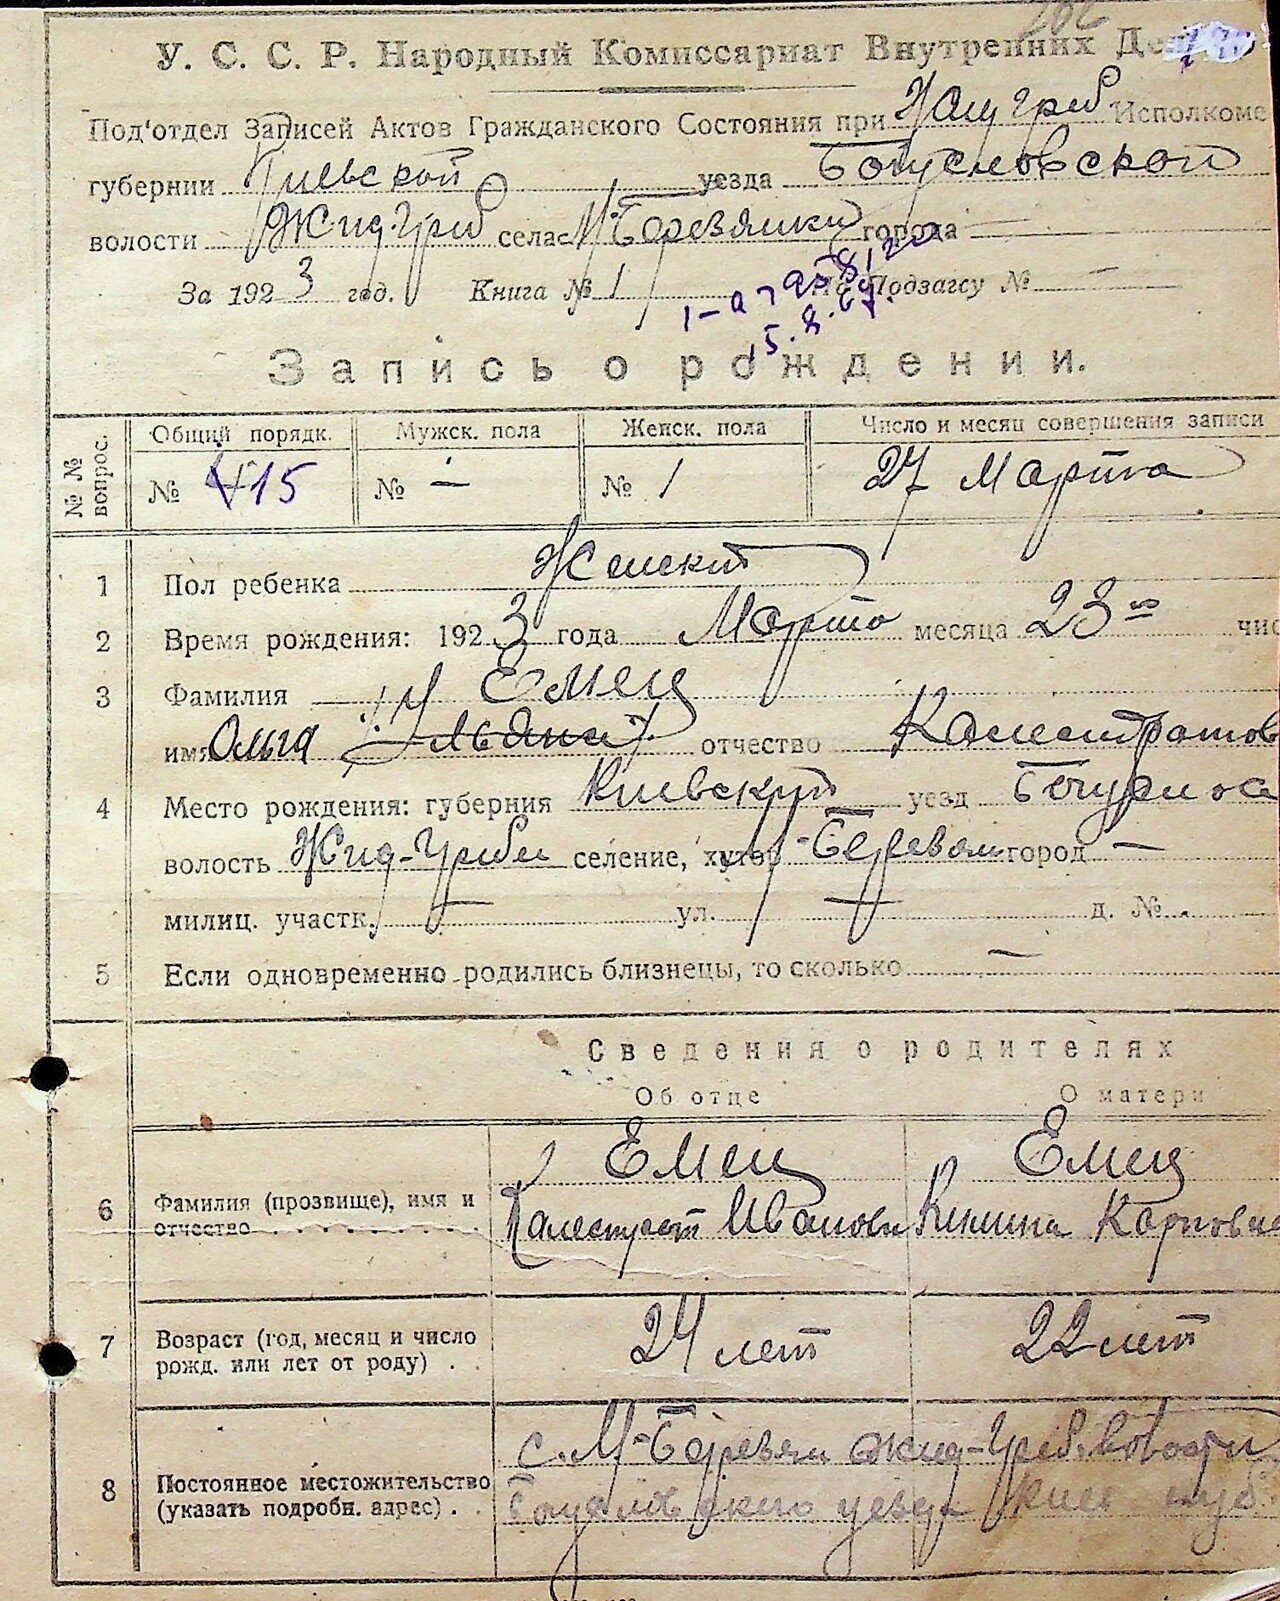 У. С. С. Р. Народный Комиссариат Внутренних
Под'отдел Записей Актов Гражданского Состояния при Исполкоме
губернии Киевской уезда Богусловской
волости Жид-Греб села М-Березянки города —
За 1923 год. Книга № 1 По Подзагсу № —
15.8.69
Запись о рождении.
№ № вопрос. Общий порядк. Мужск. пола Женск. пола Число и месяц совершения записи
№ 15 № — № 1 27 Марта
1 Пол ребенка Женский
2 Время рождения: 1923 года Марта месяца 23го
3 Фамилия Емец
имя Ольга Ульяна отчество Калестратов
4 Место рождения: губерния Киевской уезд
волость Жид-Греби селение, хутор город —
милиц. участк. — ул. — д. №
5 Если одновременно родились близнецы, то сколько —
Сведения о родителях
Об отце О матери
Емец Емец
6 Фамилия (прозвище), имя и отчество Калестрат Иванов Карповна
7 Возраст (год, месяц и число рожд. или лет от роду) 24 лет 22 лет
с. М-Березян Жид-Греб. волости
8 Постоянное местожительство (указать подробн. адрес) уезда Киев губ.